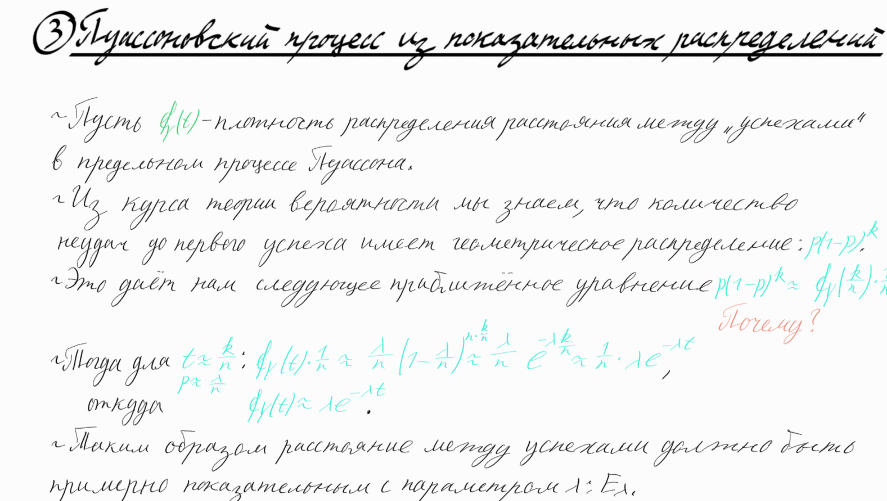 ③ Пуассоновский процесс из показательных распределений
~ Пусть φ(t) - плотность распределения расстояния между „успехами“
в предельном процессе Пуассона.
~ Из курса теории вероятности мы знаем, что количество
неудач до первого успеха имеет геометрическое распределение: p(1-p)^k.
~ Это даёт нам следующее приближённое уравнение p(1-p)^k ≈ φ(k/n)·
Почему?
~ Тогда для t ≈ k/n: φ(t)·1/n ≈ λ/n (1-λ/n)^{n·k/n} ≈ λ/n e^{-λk/n} ≈ 1/n · λe^{-λt},
p ≈ λ/n
откуда φ(t) ≈ λe^{-λt}.
~ Таким образом расстояние между успехами должно быть
примерно показательным с параметром λ: Eλ.